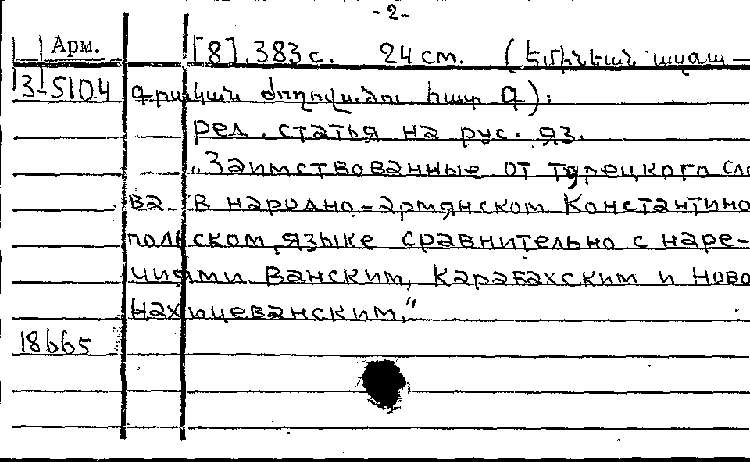 -2-
Арм. [8], 383 с. 24 cm. (Էմինեան ազգա-
3-5104 գրական ժողովածու հատ Գ):
рез. статья на рус. яз.
„Заимствованные от турецкого сло
ва в народно-армянском Константино
польском языке сравнительно с наре-
чиями Ванским, Карабахским и Ново
Нахичеванским."
18665